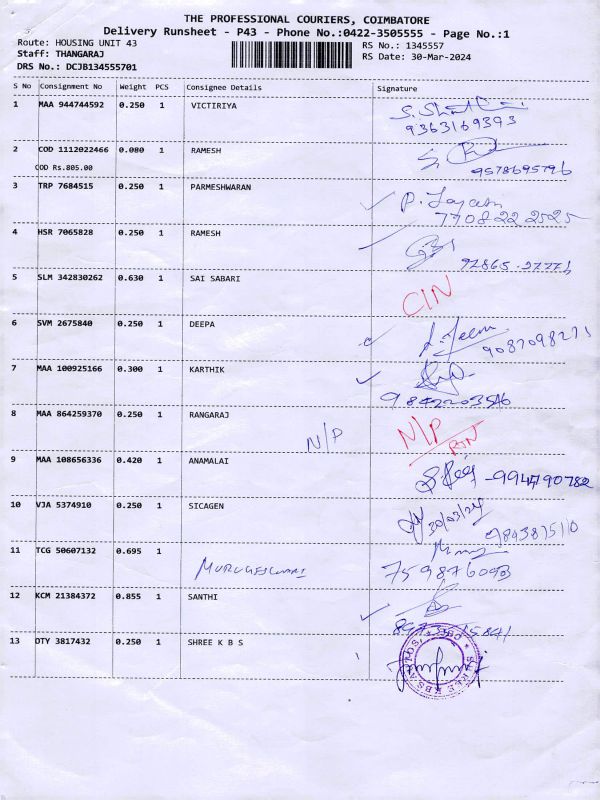 THE PROFESSIONAL COURIERS, COIMBATORE
Delivery Runsheet - P43 - Phone No.:0422-3505555 - Page No.:1
Route: HOUSING UNIT 43 RS No.: 1345557
Staff: THANGARAJ RS Date: 30-Mar-2024
DRS No.: DCJB134555701
S No Consignment No Weight PCS Consignee Details Signature
1 MAA 944744592 0.250 1 VICTIRIYA
9363169393
2 COD 1112022466 0.080 1 RAMESH
COD Rs.805.00 9578695796
3 TRP 7684515 0.250 1 PARMESHWARAN
77082 2 2525
4 HSR 7065828 0.250 1 RAMESH
5 SLM 342830262 0.630 1 SAI SABARI
CIN
6 SVM 2675840 0.250 1 DEEPA
9087098271
7 MAA 100925166 0.300 1 KARTHIK
8 MAA 864259370 0.250 1 RANGARAJ
N/P N/P
RTN
9 MAA 108656336 0.420 1 ANAMALAI
-994790782
10 VJA 5374910 0.250 1 SICAGEN
30/03/24
9843875110
11 TCG 50607132 0.695 1
MURUGESWARI 759876093
12 KCM 21384372 0.855 1 SANTHI
13 DTY 3817432 0.250 1 SHREE K B S